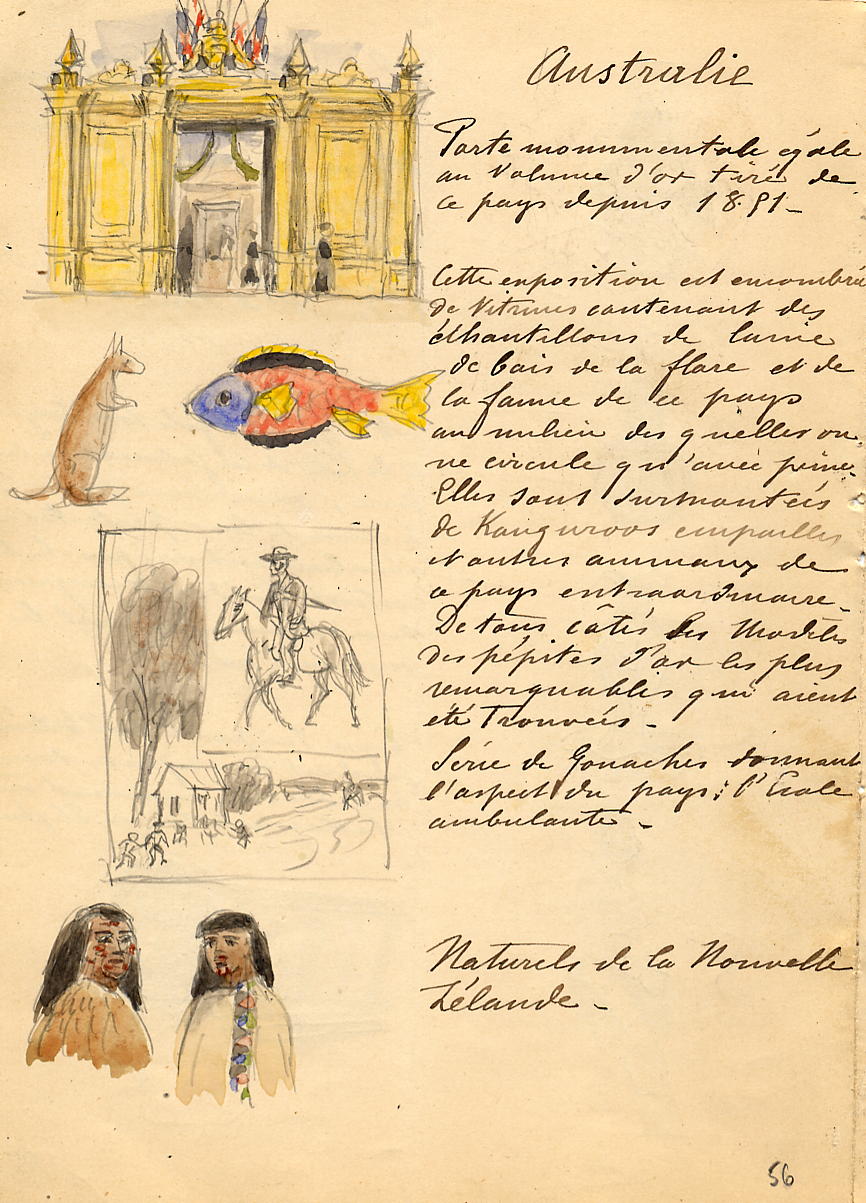 Australie
Porte monumentale égale
au Volume d'or tiré de
ce pays depuis 1851_
Cette exposition est encombrée
de Vitrines contenant des
échantillons de laine
de bois de la flore et de
la faune de ce pays
au milieu des quelles on
ne circule qu'avec peine.
Elles sont surmontées
de Kanguroos empaillés
et autres animaux de
ce pays extraordinaire_
De tous côtés les Modèles
des pépites d'or les plus
remarquables qui aient
été Trouvées_
Série de Gouaches donnant
l'aspect du pays: l'Ecole
ambulante_
Naturels de la Nouvelle
Zélande_
56